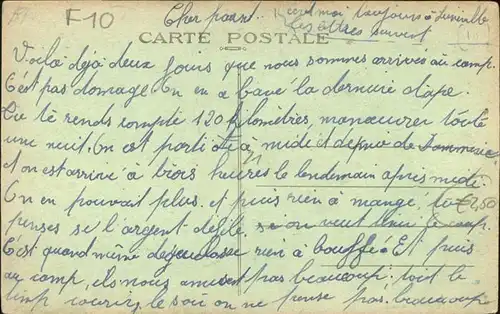 F10
Cher parent.
toujours à
lettres souvent
CARTE POSTALE
Voilà déjà deux jours que nous sommes arrivés au camp.
C'est pas domage. On en a bavé la dernière étape.
Tu te rends compte 120 kilomètres, manœuvrer toute
une nuit. On est parti à midi et depuis
et on est arrivé à trois heures le lendemain après midi
On en pouvait plus. et puis rien à mangé, tu
€2,50
penses se l'argent défile si on veut
C'est quand même dégeulasse rien à bouffé. Et puis
au camp, ils nous amusent pas beaucoup, toit le
temp courir, le soir on ne pense pas beaucoup